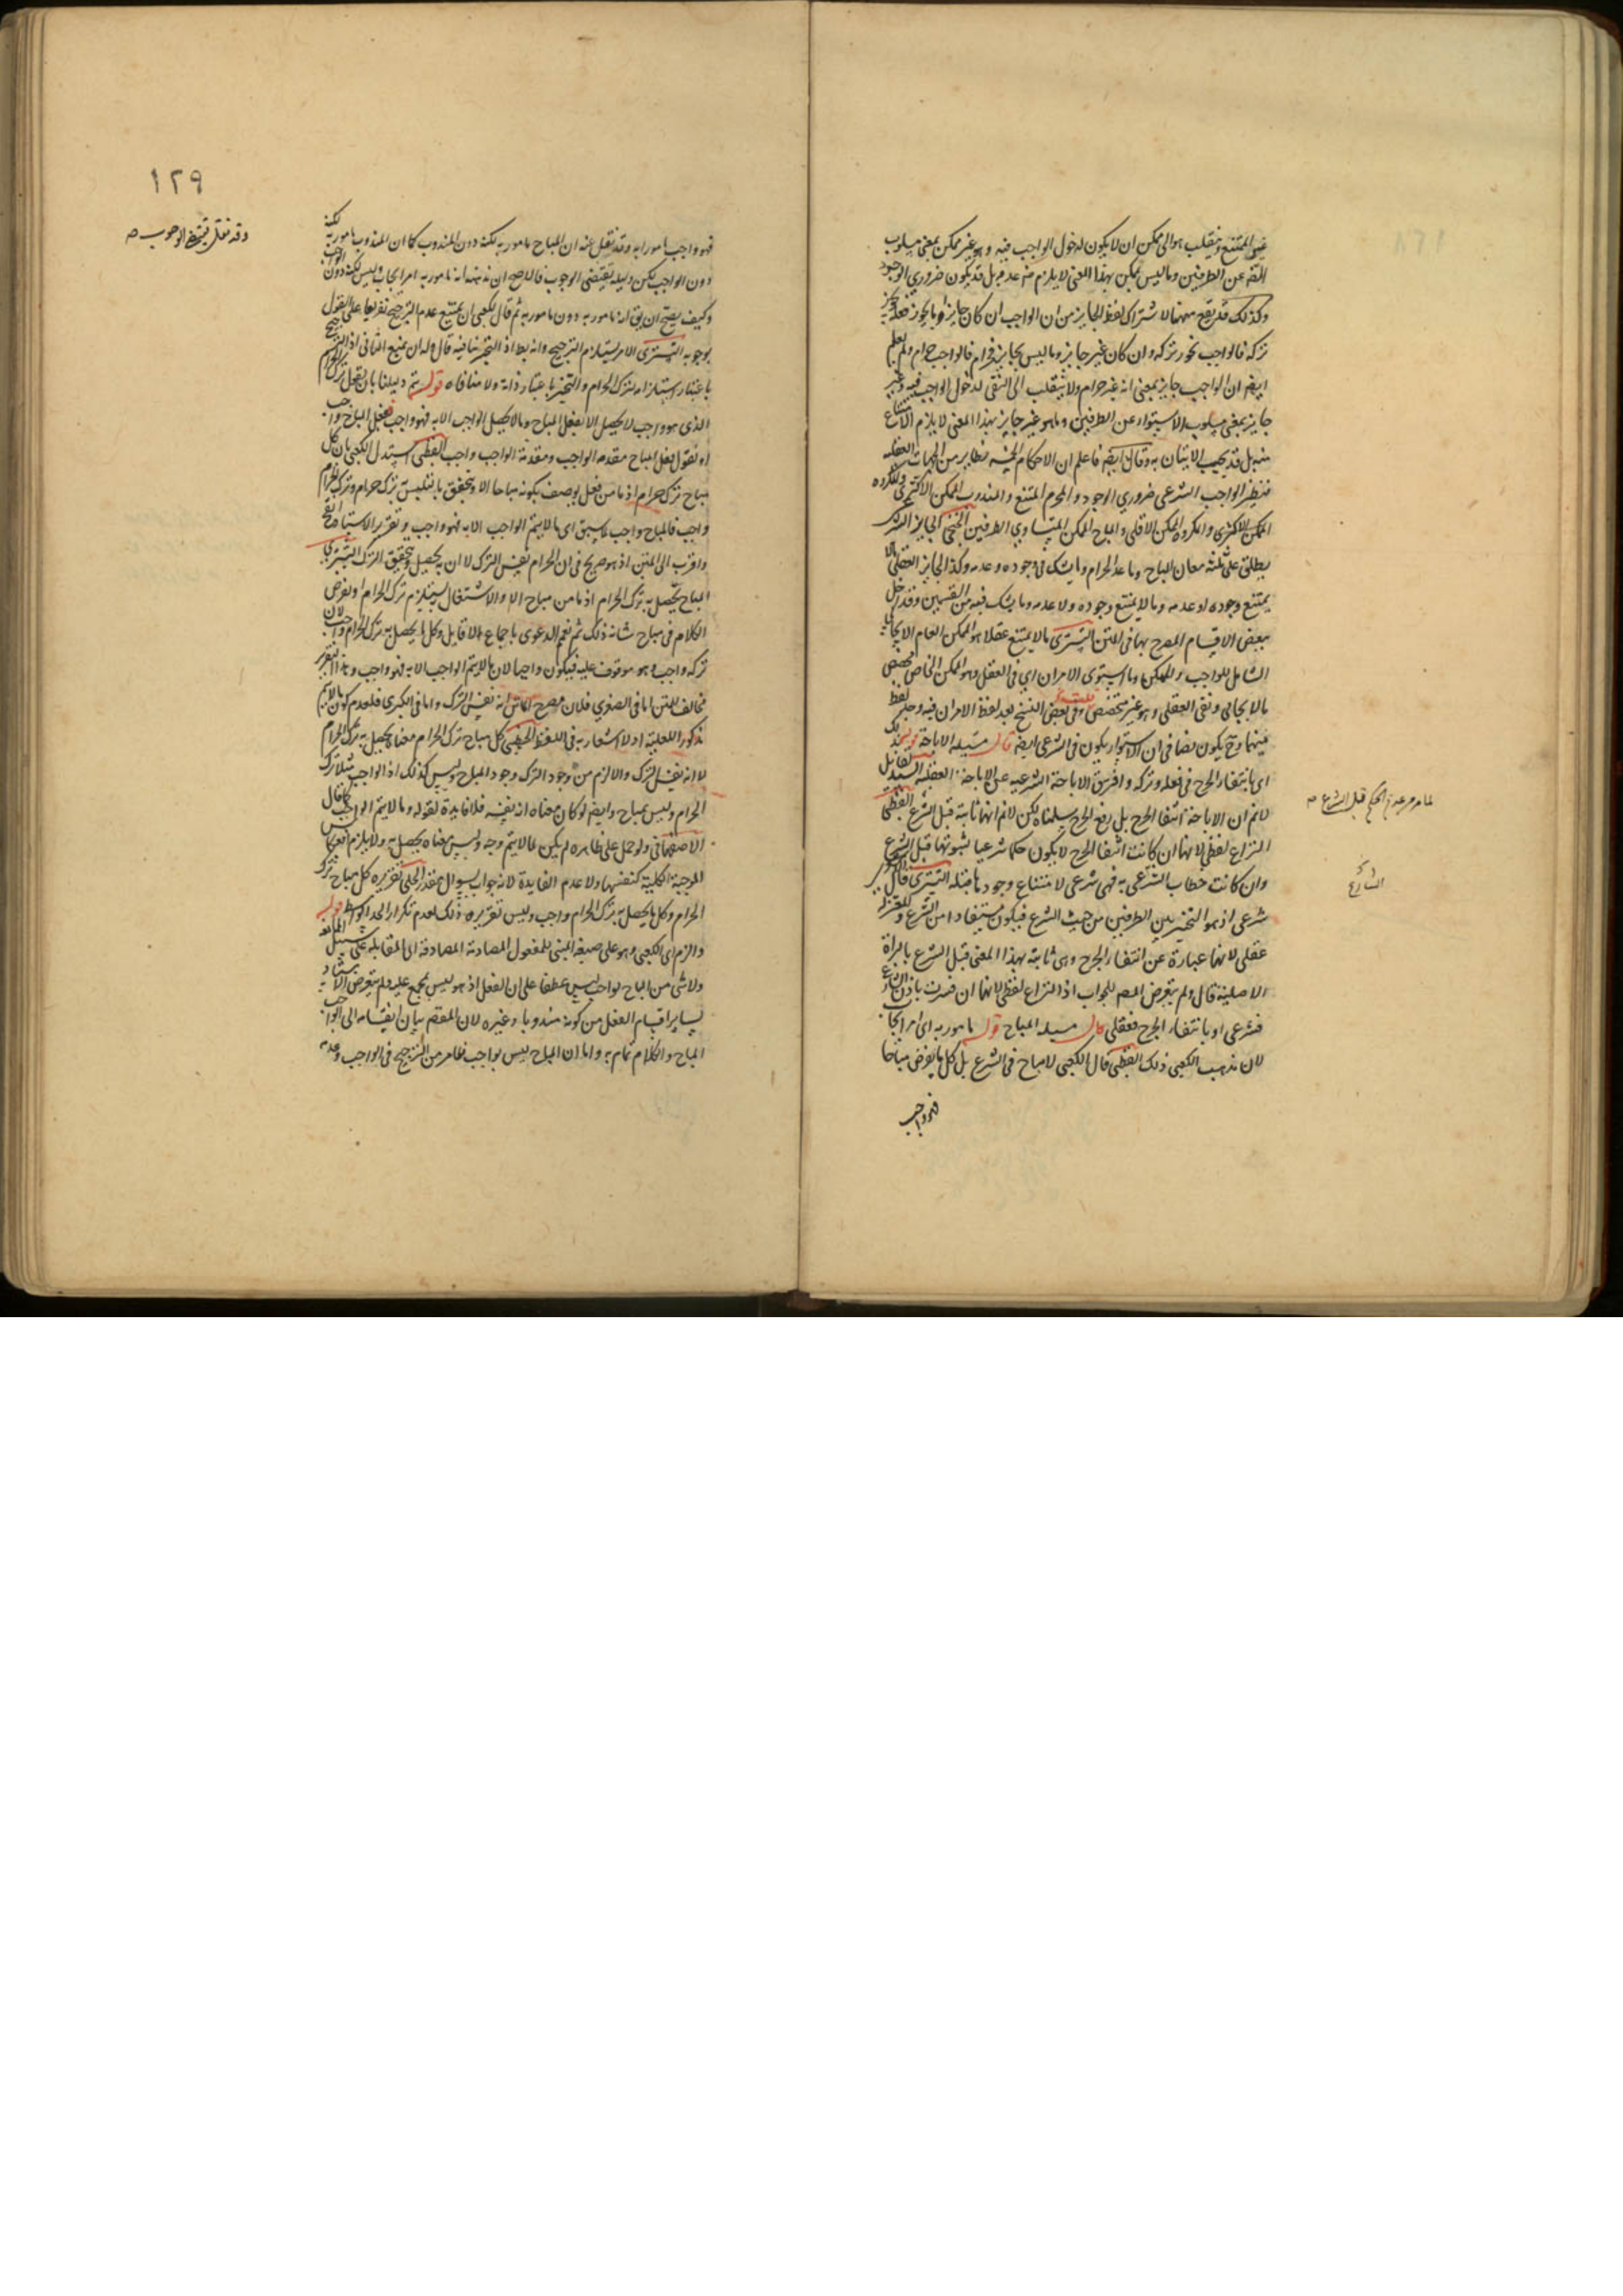 غير الممتنع فينقلب هو الى ممكن ان لا يكون لدخول الواجب فيه وهو غير ممكن بمعنى مسلوب
الضرورة عن الطرفين وما ليس بممكن بهذا المعنى لا يلزم منه عدمه بل قد يكون ضروري الوجود
وكذلك قد يقع ههنا لاشتراك لفظ الجايز من ان الواجب ان كان جايزا وما يجوز فعله يجوز
تركه فالواجب يجوز تركه وان كان غير جايز وما ليس بجايز فحرام فالواجب حرام ولم يعلم
ايضا ان الواجب جايز بمعنى انه غير حرام ولا ينقلب الى النفى لدخول الواجب فيه وغير
جايز بمعنى مسلوب الاستواء عن الطرفين وما هو غير جايز بهذا المعنى لا يلزم الامتناع
منه بل قد يجب الاتيان به وقال ايضا فاعلم ان الاحكام الخمسة نظاير من الجهات العقلية
فنظير الواجب الشرعى ضروري الوجود والمحرم الممتنع والمندوب الممكن الاكثرى والمكروه
الممكن الاقلى والمباح الممكن المتساوي الطرفين الخنجى الجايز المشترك
يطلق على ثلثة معان المباح وما عدا الحرام وما يشك فى وجوده وعدمه وكذا الجايز العقلى ما لا
يمتنع وجوده او عدمه وما لا يمتنع وجوده ولا عدمه وما يشك فيه من القسمين وقد اخل
ببعض الاقسام المصرح بها فى المتن التسترى ما لا يمتنع عقلا هو الممكن العام الايجابى
الشامل للواجب والممكن وما استوى الامران اى فى العقل وهو الممكن الخاص
بالايجابى ونفى العقلى وهو غير مختص وفى بعض النسخ بعد لفظ الامران فيه وحذف لفظ
فيهما وح يكون نصا فى ان الاستواء يكون فى الشرعى ايضا قال مسئلة الاباحة قوله
اى بانتفاء الحرج فى فعله وتركه وافترق الاباحة الشرعيه عن الاباحة العقليه السيد لقائل
لا نم ان الاباحة انتفا الحرج بل رفع الحرج سلمناه لكن لا نم انها ثابتة قبل الشرع القطبى
النزاع لفظى لانها ان كانت انتفا الحرج لا يكون حكما شرعيا لثبوتها قبل الشرع
وان كانت خطاب الشرعى به فهى شرعى لامتناع وجودها قبله التسترى قال الجمهور
شرعى اذ هو التخيير بين الطرفين من حيث الشرع فيكون مستفادا من الشرع وللمعتزلة
عقلى لانها عبارة عن انتفاء الحرج وهى ثابتة بهذا المعنى قبل الشرع بالبراة
الاصلية قال ولم يتعرض المصـ للجواب اذ النزاع لفظى لانها ان فسرت باذن الشارع
فشرعى او بانتفاء الحرج فعقلى قال مسئلة المباح قوله مامور به اى امر ايجاب
لان مذهب الكعبى ذلك القطبى قال الكعبى لا مباح فى الشرع بل كل ما يفرض مباحا
فهو واجب
لما مر من عدم الحكم قبل الشرع صـ
الشارع
١٢٩
وقد نقل بمقتضى الوجوب صـ
فهو واجب مامورا به وقد نقل عنه ان المباح مامور به لكنه دون المندوب كما ان المندوب مامور به لكنه
دون الواجب لكن دليله يقتضى الوجوب فالاصح ان مذهبه انه مامور به امر ايجاب وليس لكنه دون الواجب
وكيف يصح ان يق انه مامور به دون مامور به ثم قال للكعبى ان يمنع عدم الترجيح تفريعا على القول
بوجوبه التسترى الامر يستلزم الترجيح وانه يط اذ التخيير ينافيه قال وله ان يمنع الثانى اذ الترجيح
باعتبار استلزامه لترك الحرام والتخيير باعتبار ذاته ولا منافاة قوله ثم دليلنا بان يقول ترك الحرام
الذى هو واجب لا يحصل الا بفعل المباح وما لا يحصل الواجب الا به فهو واجب ففعل المباح واجب
او نقول فعل المباح مقدمه الواجب ومقدمة الواجب واجب القطبى استدل الكعبى بان كل
مباح ترك حرام اذ ما من فعل يوصف بكونه مباحا الا ويتحقق بالتلبس به ترك حرام وترك الحرام
واجب فالمباح واجب لما سبق اى ما لا يتم الواجب الا به فهو واجب وتقرير الاستاد اصح
واقرب الى المتن اذ هو صريح فى ان الحرام نفس الترك لا ان به يحصل ويتحقق الترك التسترى
المباح يحصل به ترك الحرام اذ ما من مباح الا والاشتغال به يستلزم ترك الحرام ولنفرض
الكلام فى مباح شانه ذلك ثم نعم الدعوى باجماع لا قايل وكل ما يحصل به ترك الحرام واجب لان
تركه واجب وهو موقوف عليه فيكون واجبا لان ما لا يتم الواجب الا به فهو واجب وهذا التقرير
مخالف للمتن اما فى الصغرى فلان مصرح المتن انه نفس الترك واما فى الكبرى فلعدم كون ما لا يتم
مذكورا للعلية اذ لا اشعار به فى اللفظ الخنجى كل مباح ترك الحرام معناه يحصل به ترك الحرام
لا انه نفس الترك والا لزم من وجود الترك وجود المباح وليس كذلك اذ الواجب مثلا ترك
الحرام وليس بمباح وايضا لو كان معناه انه نفسه فلا فايدة لقوله وما لا يتم الواجب كما قال
الاصفهانى ولو حمل على ظاهره لم يكن لما لا يتم وجه وليس معناه يحصل به ولا يلزم انعكاس
الموجبة الكلية كنفسها ولا عدم الفايدة لانه جواب سوال مقدر الحلى تقريره كل مباح ترك
الحرام وكل ما يحصل به ترك الحرام واجب وليس تقريره ذلك لعدم تكرار الحد الاوسط قوله
والزم اى الكعبى وهو على صيغه المبنى للمفعول المصادمة المصادفة اى المقابله على سبيل الممانعة
ولا شى من المباح بواجب ليس عطفا على ان الفعل اذ هو ليس بمجمع عليه ولم يتعرض الاستاد
لساير اقسام الفعل من كونه مندوبا وغيره لان المقصـ بيان انقسامه الى الواجب
المباح والكلام تمام به واما ان المباح ليس بواجب فظاهر من الترجيح فى الواجب وعدمه